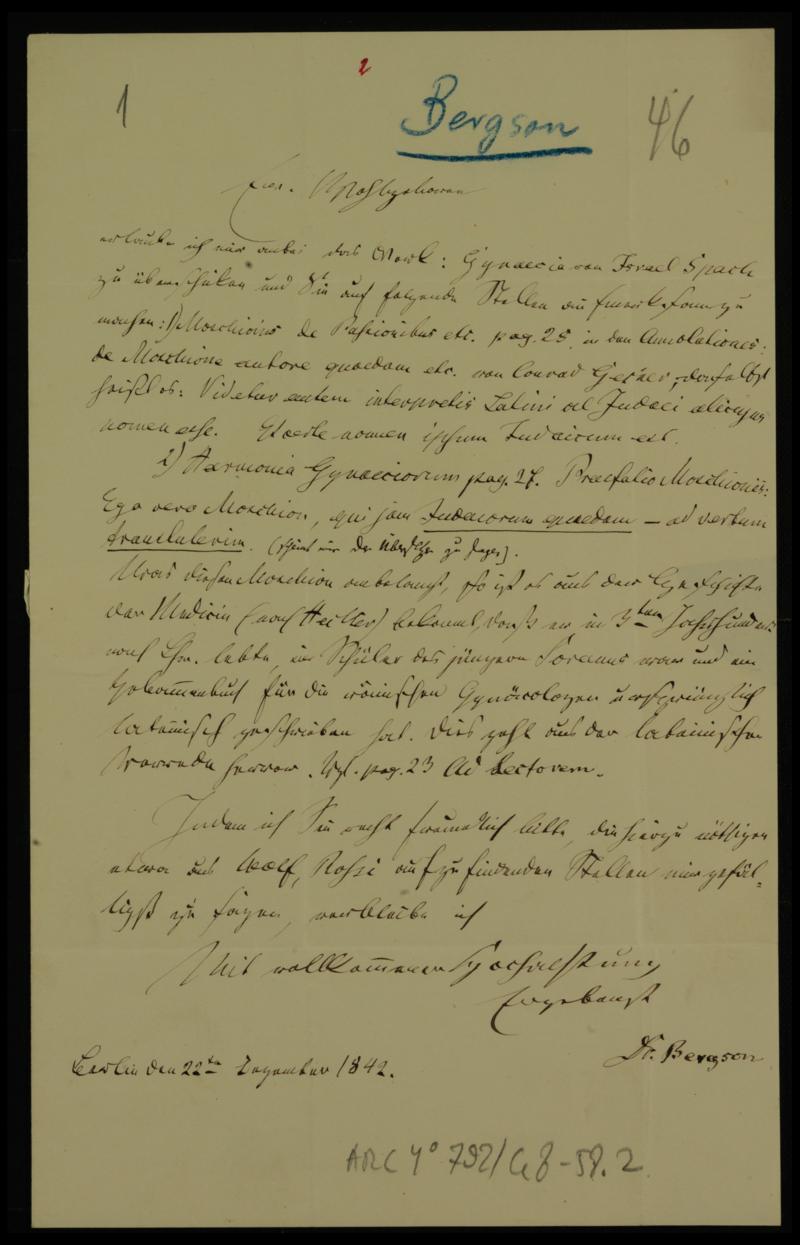 2
1
Bergson
46
Ew. Wohlgeboren
erlaube ich mir anbei das Werk: Gynaecia von Israel Spach
zu überschicken und Sie auf folgende Stellen aufmerksam zu
machen: 1) Moschionis de Passionibus etc. pag. 25, in den Annotationes:
de Moschione autore quaedam etc. von Conrad Gesner, daselbst
heißt es: Videtur autem interpretis Latini vel Judaei alicujus
nomen esse. nomen ipsum Judaicum est.
2) Harmonia Gynaeciorum pag. 27. Praefatio Moschionis:
Ego vero Moschion, qui jam Judaeorum quaedam — ad verbum
transtulerim. (scheint mir der Übersetzer zu sagen).
Was diesen Moschion anbelangt, so ist es aus der Geschichte
der Medicin (nach Hecker) bekannt, daß er im 3ten Jahrhundert
nach Chr. lebte, ein Schüler des jüngern Soranus war und ein
Hebammenbuch für die römischen Gynäcologen ursprünglich
lateinisch geschrieben hat. Dies geht aus der lateinischen
Vorrede hervor. Vgl. pag. 23 Ad Lectorem.
Indem ich Sie recht freundlich bitte, die hierzu nöthigen
etwa aus Wolf, Rossi aufzufindenden Stellen mir gefäl-
ligst zu sagen, verbleibe ich
Mit vollkommener Hochachtung
Ergebenst
Dr. Bergson
Berlin den 22ten Dezember 1842.
ARC 4° 792/G8-58.2